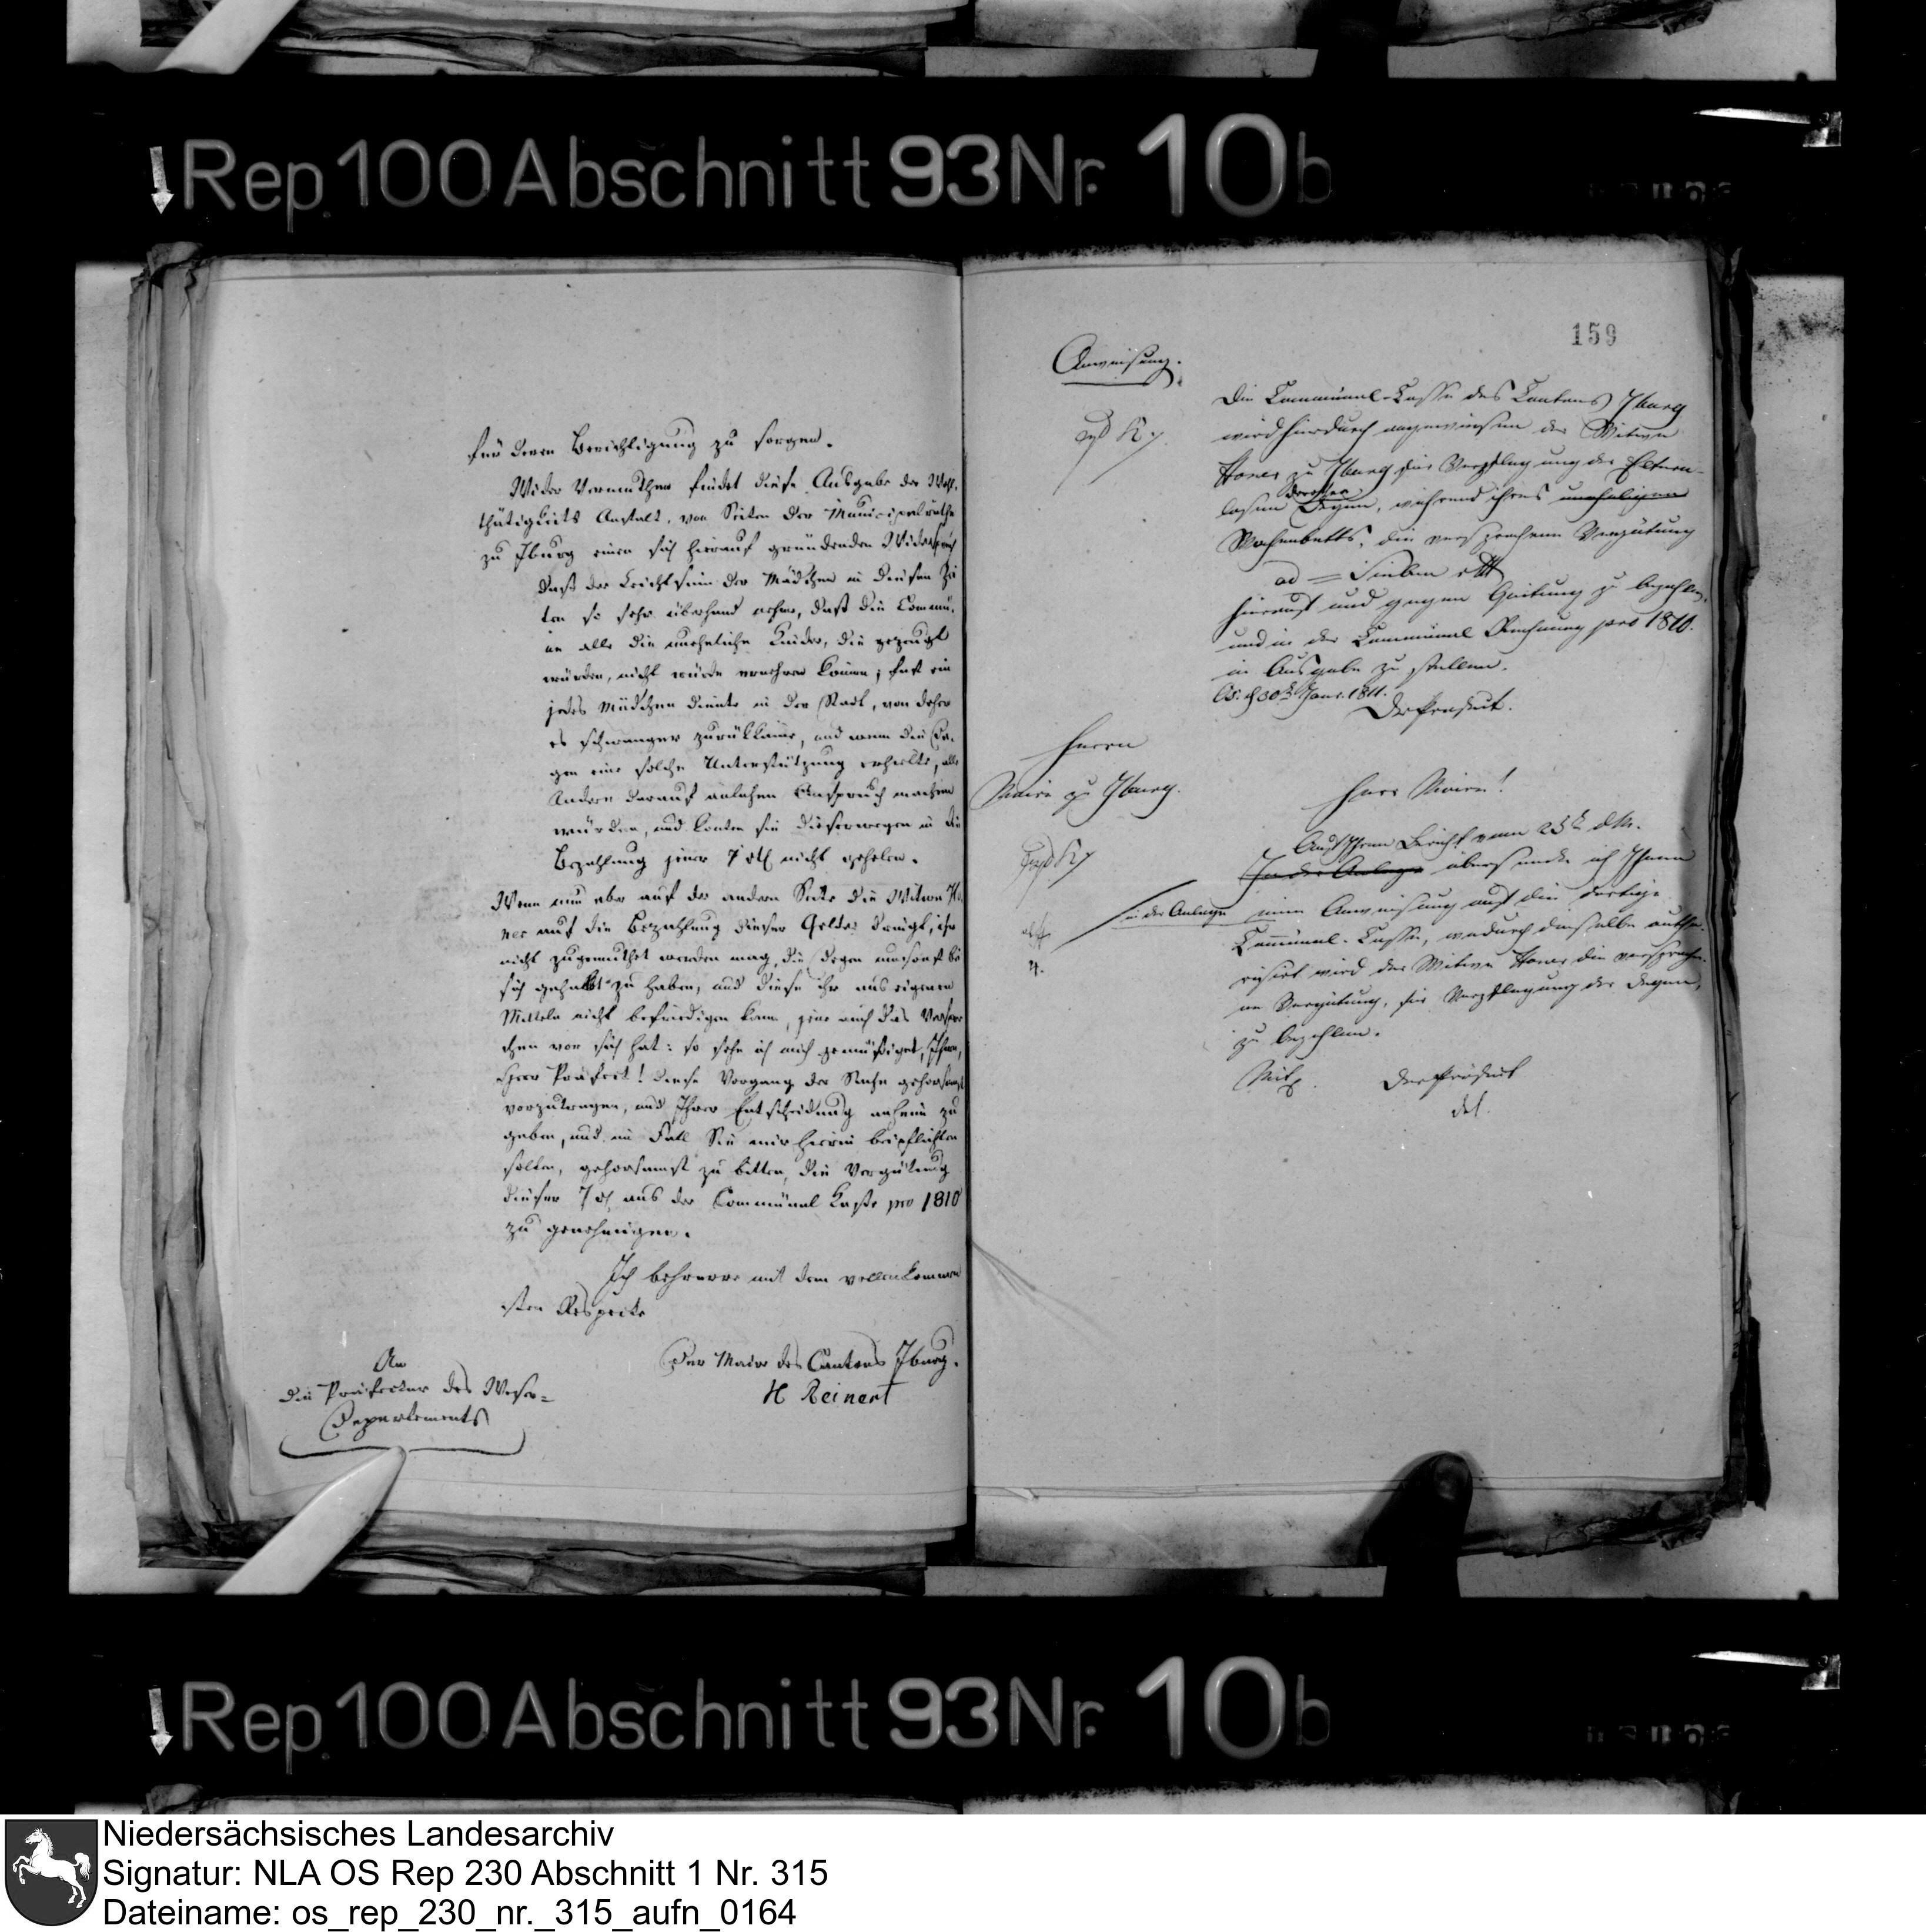 Rep. 100 Abschnitt 93 Nr. 10b
für deren Berichtigung zu sorgen.
Wider Vermuthen findet diese Ausgabe der Wohl-
thätigkeits Anstalt, von Seiten der Municipalräthe
zu Iburg einen sich hierauf gründenden Widerspruch
daß der Leichtsinn der Mädchen in diesen Zei
ten so sehr überhand nehme, daß die Commu-
ne alle die uneheliche Kinder, die gezeugt
würden, nicht würde ernehren können; fast ein
jedes Mädchen diente in der Stadt, von daher
es schwanger zurükkäme, und wenn die De-
gen eine solche Unterstützung erhielte, alle
Andere darauf änlichen Anspruch machen
würden, und konten sie dieserwegen in die
Bezahlung jener 7 rtl nicht gehelen.
Wenn nun aber auf der andern Seite die Witwe Ho-
ner auf die Bezahlung dieser Gelder dringt, ihr
nicht zugemuthet werden mag, die Degen umsonst bei
sich gehabt zu haben, und diese ihr aus eigenen
Mitteln nicht befriedigen kann, jene auch das Verspre
chen vor sich hat: so sehe ich mich gemüßiget, Ihnen,
Herr Präfect! diese Vorgang der Sache gehorsamst
vorzutragen, und Ihrer Entscheidung anheim zu
geben, und im Fall Sie mir hierin beipflichten
solten, gehorsamst zu bitten, die Vergütung
dieser 7 rtl aus der Communal Kasse pro 1810
zu genehmigen.
Ich beharre mit dem vollenkommen
sten Respecte
Der Maire des Cantons Iburg.
H Reinert
An
die Präfectur des Weser=
Departements
159
Anweisung.
Die Communal-Casse des Cantons Iburg
wird hierdurch angewiesen der Witwe
Honer zu Iburg für Verpflegung der Eltern-
losen Degen, während ihres unehelichen
Wochenbetts, die versprochene Vergütung
ad = Sieben rtl
hierauf und gegen Quitung zu bezahlen,
und in der Communal Rechnung pro 1810.
in Ausgabe zu stellen.
Os. d 30t Janr. 1811.
Der Präfect.
Herrn
Maire zu Iburg.
Herr Maire!
Auf Ihren Bericht vom 25t d M.
In der Anlage übersende ich Ihnen
in der Anlage eine Anweisung auf die dortige
Communal-Casse, wodurch dieselbe autho-
risirt wird der Witwe Honer die versproche-
ne Vergütung, für Verpflegung der Degen,
zu bezahlen.
Der Präfect
Rep. 100 Abschnitt 93 Nr. 10b
Niedersächsisches Landesarchiv
Signatur: NLA OS Rep 230 Abschnitt 1 Nr. 315
Dateiname: os_rep_230_nr._315_aufn_0164